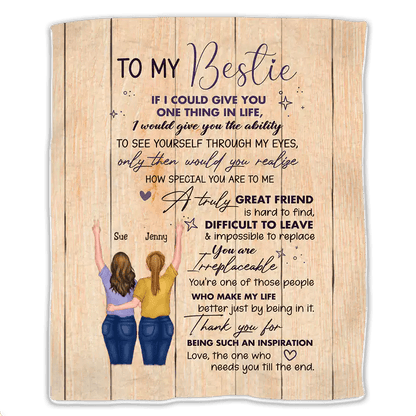 TO MY Bestie
IF I COULD GIVE YOU
ONE THING IN LIFE,
I would give you the ability
TO SEE YOURSELF THROUGH MY EYES,
only then would you realize
HOW SPECIAL YOU ARE TO ME
A truly GREAT FRIEND
is hard to find,
DIFFICULT TO LEAVE
& impossible to replace
You are
Irreplaceable
You're one of those people
WHO MAKE MY LIFE
better just by being in it.
Thank you for
BEING SUCH AN INSPIRATION
Love, the one who
needs you till the end.
Sue Jenny